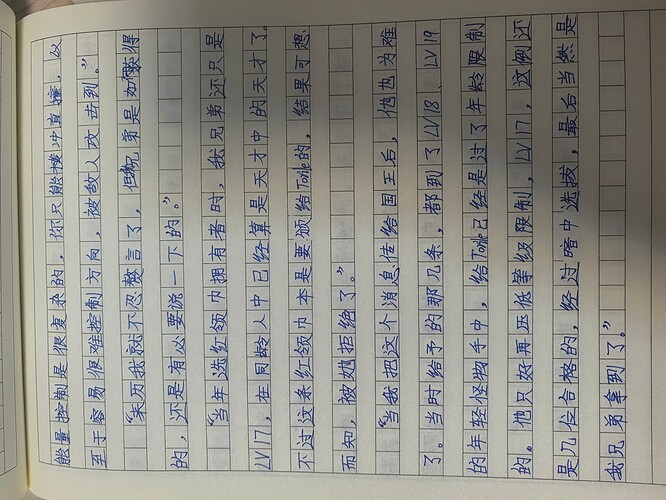 能量控制是很复杂的，你只能横冲直撞，以
至于容易很难控制方向，被敌人攻击到。”
“来历我就不忍整言了，但兄弟是如何获得
的，还是有必要说一下的。”
“当年选红领巾拥有者时，我兄弟还只是
LV17，在同龄人中已经算是天才中的天才了。
不过这条红领巾本是要颁给Tole的，结果可想
而知，被她拒绝了。”
“当我把这个消息传给国王后，他也为难
了。当时给予的那几条，都到了LV18、LV19
的年轻怪物手中，给Tole已经是过了年龄限制
的。他只好再压低等级限制，LV17，这倒还
是几位合格的，经过暗中选拔，最后当然是
我兄弟拿到了。”